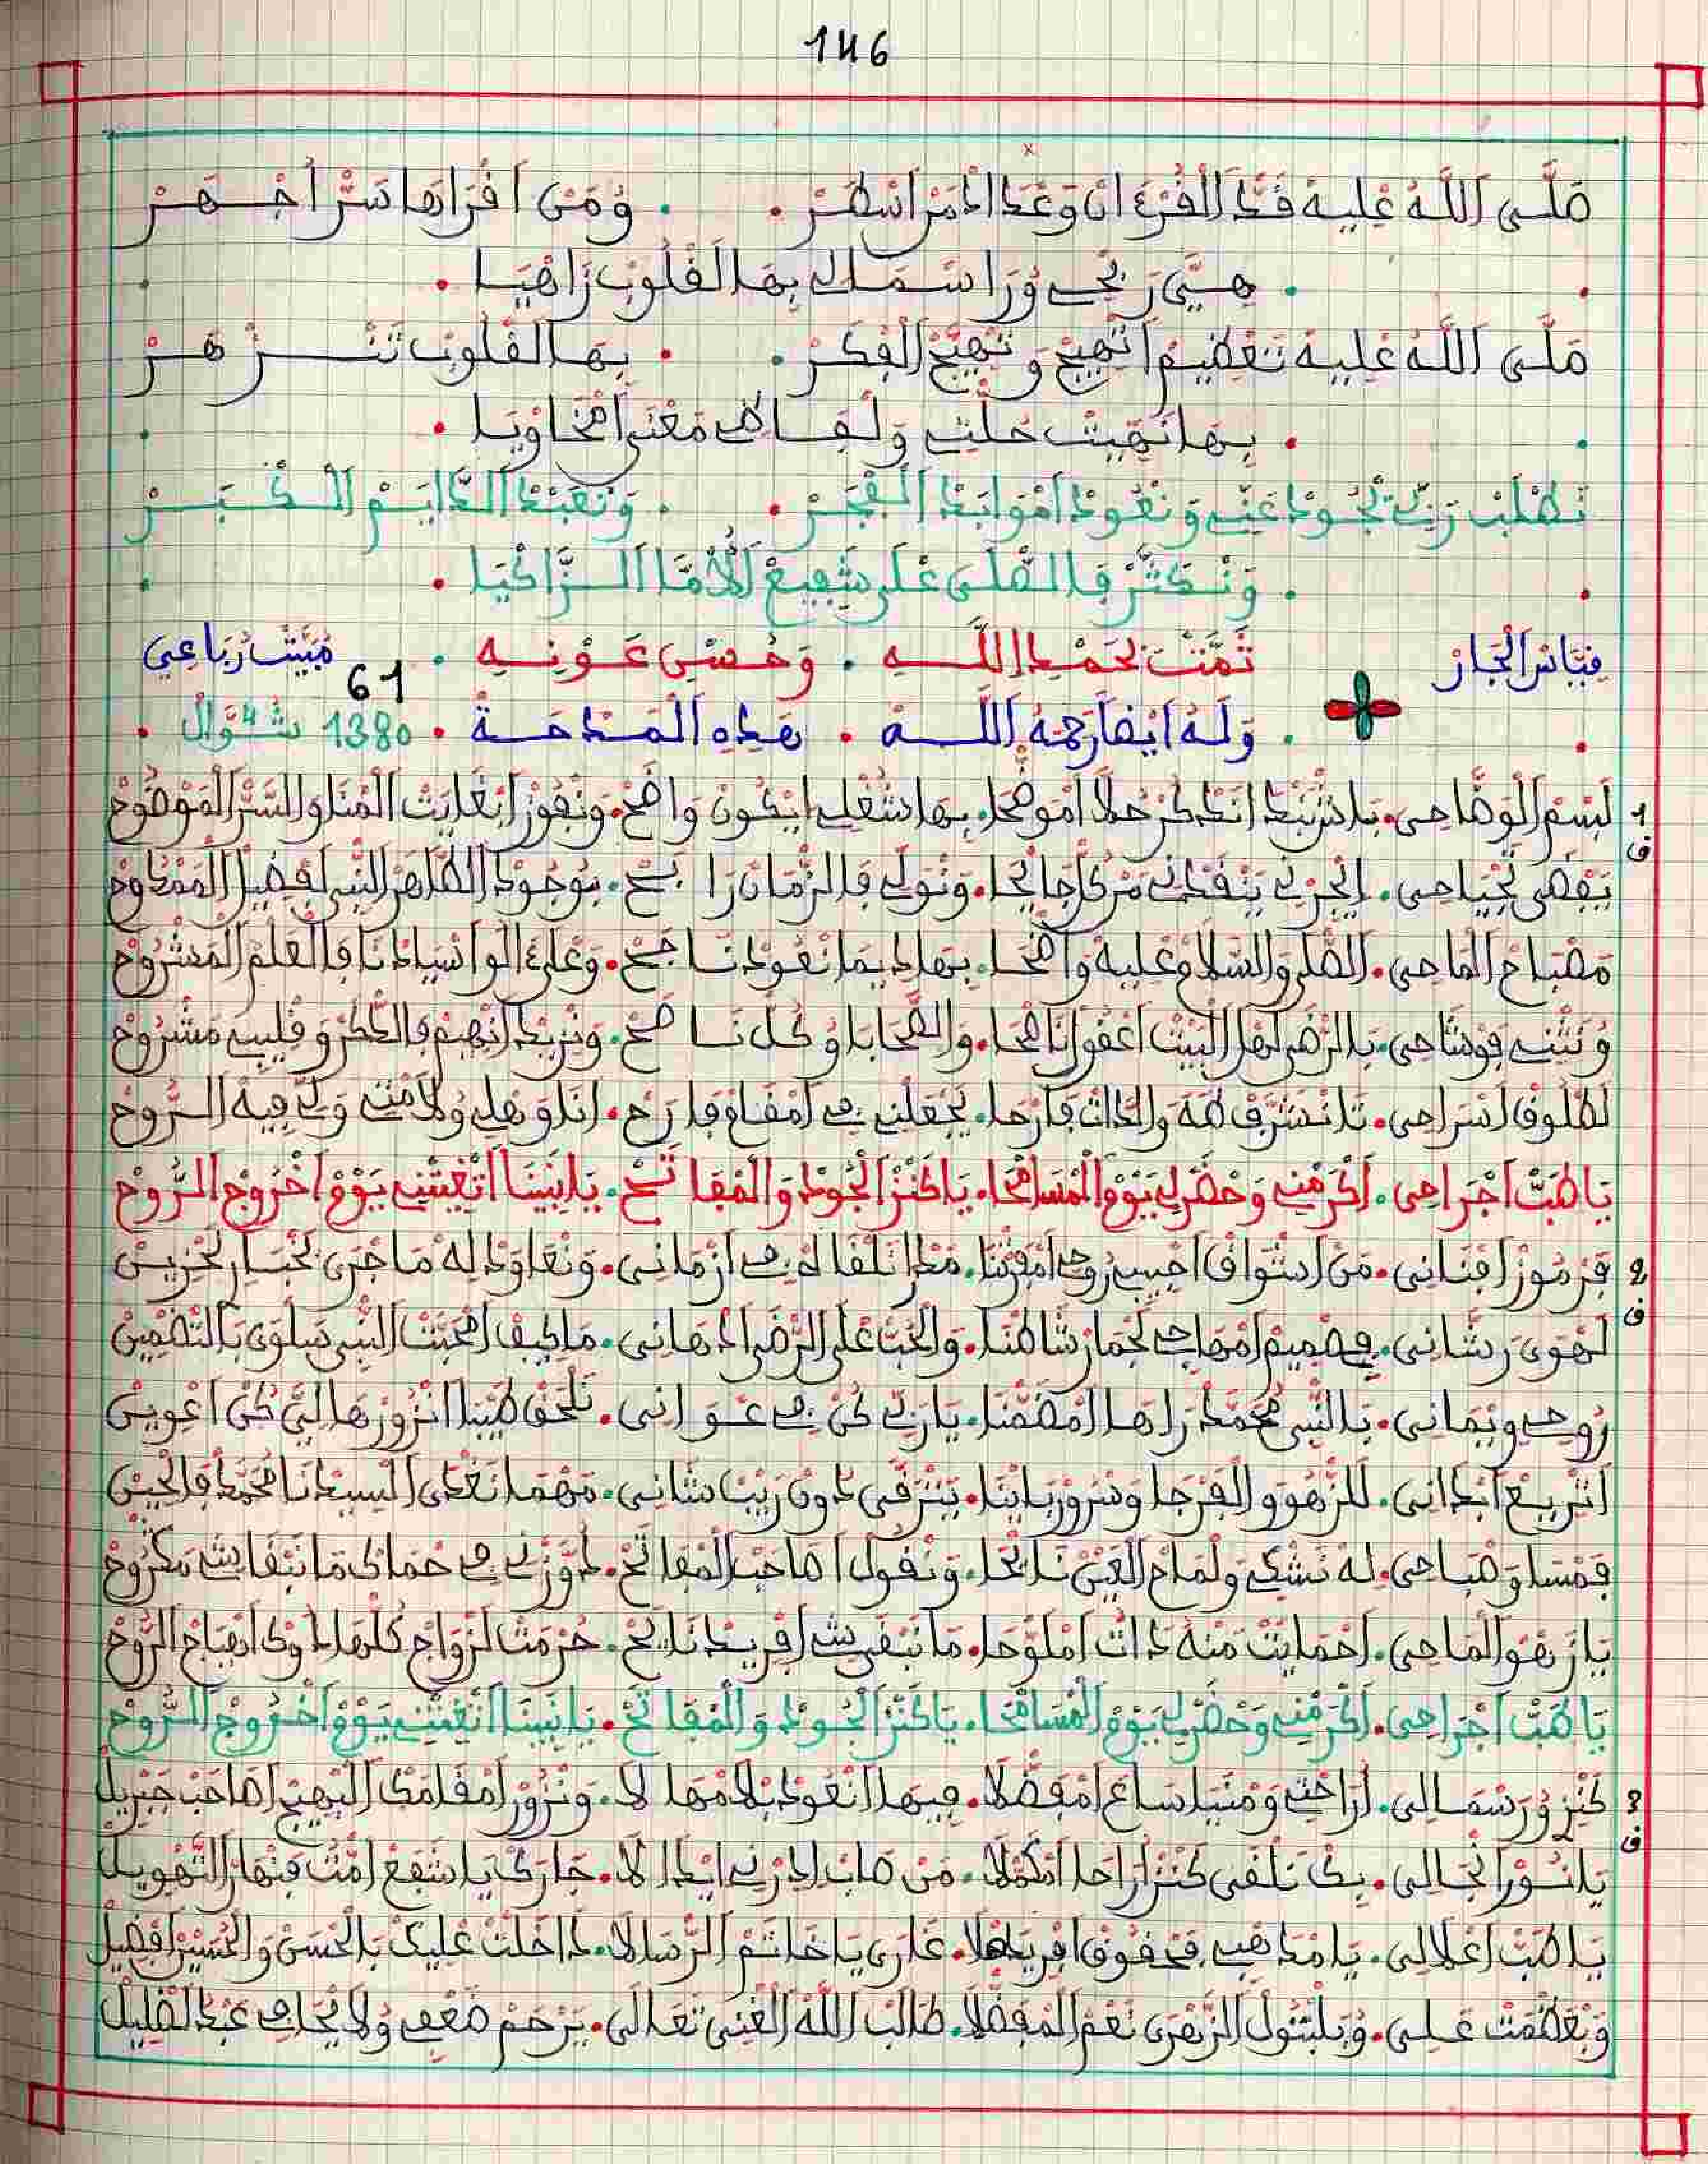 146
صَلَّى اللَّهُ عْلِيهْ قَدّ الْقُرْءَانْ وَعْدَادْ مَنْ اسْطَرْ . . وُمَنْ اقْرَاهَا سَرّ اجْهَرْ
. هِيَّ رَبْحِي وُرَاسْمَالِي بِهَا لَقْلُوبْ زَاهْيَا .
صَلَّى اللَّهُ عْلِيهْ تَعْظِيمْ اتْهِيجْ وَتْهِيَّجْ الْفْكَرْ . . بِهَا لَقْلُوبْ تَنْزْهَرْ
. بِهَا نَهِيتْ حُلْتِي وَلْفَاظِي مَعْنَى امْحَاوْيَا .
نَطْلَبْ رَبِّي يْجُودْ عَنِّي وَنْعُودْ امْوَابَدْ الْفْجَرْ . . وَنْعَبَّدْ الدَّايَمْ الْكْبَرْ
. وَنْكَثَّرْ فَالصّْلَى عْلَى شْفِيعْ الُامَّا الزَّاكْيَا .
قْيَاسْ الْجَارْ تَمَّتْ بْحَمْدِ اللَّهِ . وَحُسْنِ عَوْنِهِ . مْبَيَّتْ رُبَاعِي
61
. وَلَهُ أيضا رَحِمَهُ اللَّهُ . هَذِهِ الْمَدْحَةُ . 1380 شَوَّالْ .
1 لَسْمْ الْوَضَّاحِي . بَاشْ نَبْدَا نَدْكُرْ حُلَّا امْوَضْحَا . بِهَا شُغْلِي ايْكُونْ وَاضْحْ . وَنْفُوزْ ابْغَايْتْ الْمْنَا وَالسَّرّ الْمَوْضُوحْ
ف يَقْضَى تَجْيَاحِي . الْحْزْنِي يَنْفْدْنِي مَنْ كُلّ جَايْحَا . وَنْوَلِّي فَالزّْمَانْ رَابْحْ . بَوْجُودْ الطَّاهَرْ النّْبِي لَفْضِيلْ الْمَمْدُوحْ
مَصْبَاحْ الْمَاحِي . الصّْلَى وَالسّْلَامْ عْلِيهْ وَاضْحَا . بِهَا دِيمَا نْعُودْ نَاجْحْ . وَعْلَى ءَالُو اسْيَادْنَا فَالْعَلْمْ الْمَشْرُوحْ
وُنَثْنِي فَوْشَاحِي . بَالرّْضَى لَهْلْ الْبَيْتْ اعْقُولْ نَاصْحَا . وَالصّْحَابَا وُكُلّ نَاصْحْ . وَنْزِيدْ انْهِيمْ فَالدّْكَرْ وَقْلِيبِي مَشْرُوحْ
لَطْلُوقْ اسْرَاحِي . تَا نْشَرَّفْ طَهَ وَالدَّاتْ فَارْحَا . يَجْعَلْنِي فِي امْقَامْ فَارَحْ . انَا وَهْلِي وُلَامْتِي وَلِّي فِيهْ الرُّوحْ
يَا طَبّ اجْرَاحِي . اكْرَمْنِي وَحْضَرْ لِي يَوْمْ الْمْسَامْحَا . يَا كَنْزْ الْجُودْ وَالْمْفَاتَحْ . يَا نْبِينَا اتْغِيثْنِي يَوْمْ اخْرُوجْ الرُّوحْ
2 فَرْمُوزْ افْنَانِي . مَنْ اشْوَاقْ احْبِيبْ رُوحِي امْفَتْنَا . مَدَا نَلْقَا لُهْ فِي ازْمَانِي . وَنْعَاوَدْ لِهْ مَا جْرَى لَخْبَارْ لَحْزِينْ
ف لَهْوَى رَشَّانِي . فِي صْمِيمْ امْهَاجِي لَجْمَارْ شَاطْنَا . وَالْحُبّ عْلَى الرّْضَى ادْهَانِي . مَا كِيفْ امْحَبّْتْ النّْبِي سَلْوَى بَالتَّضْمِينْ
رُوحِي وِيمَانِي . بَالنّْبِي مُحَمَّدْ رَاهَا امْضَمّْنَا . يَا رَبِّي كُنْ فِي عْوَانِي . نَلْحَقْ طَيْبَا انْزُورْهَا لِيَّ كُنْ اعْوِينْ
اتْرِيعْ ابْدَانِي . لَلزّْهُو وَالْفَرْجَا وَسْرُورْ بَايْنَا . يَتْرَقَّى دُونْ رِيبْ شَانِي . مَهْمَا نَغْدَى السِيدْنَا مُحَمَّدْ فَالْحِينْ
فَمْسَا وَصْبَاحِي . لَهْ نَشْكِي وَلْمَاحْ الْعَيْنْ نَايْحَا . وَنْقُولْ اصَاحَبْ الْمْفَاتَحْ . دَوَّزْنِي فِي حْمَاكْ مَا نَبْقَاشِي مَكْرُوحْ
يَا زَهْوْ الْمَاحِي . احْمَايْتْ مَنُّهْ دَاتْ امْلَوْحَا . مَا نَبْقَى شِي افْرِيدْ نَايَحْ . حُرْمَتْ لَزْوَاجْ كُلّْهَا دُوكْ اصْبَاحْ الرُّوحْ
يَا طَبّ اجْرَاحِي . اكْرَمْنِي وَحْضَرْ لِي يَوْمْ الْمْسَامْحَا . يَا كَنْزْ الْجُودْ وَالْمْفَاتَحْ . يَا نْبِينَا اتْغِيثْنِي يَوْمْ اخْرُوجْ الرُّوحْ
3 كَنْزِي وُرَسْمَالِي . ارَاحْتِي وَمْنْيَا سَاعْ امْفَضْلَا . فِيهَا انْعُودْ بْلَا مْهَالَا . وَنْزُورْ امْقَامَكْ الْبْهِيجْ اصَاحَبْ جَبْرِيلْ
ف يَا نُورْ انْجَالِي . بِكْ نَلْقَى كَنْزْ ارَاحَا امْكَمّْلَا . مَنْ صَابْ ادْرْنِي ايْدَالَا . جَارَكْ يَا شْفِعْ امّْتْ فَنْهَارْ التَّهْوِيلْ
يَا طَبّ اعْلَالِي . يَا مْدَاهْبِي فَحْقُوقْ افْرِيدْهْلَا . عَارِي يَا خَاتَمْ الرّْسَالَا . دَاخَلْتْ عْلِيكْ بَالْحْسَنْ وَالْحْسِينْ افْضِيلْ
وَبْعَظْمَتْ عَلِي . وُبَلْبْتُولْ الزَّهْرَى نَعْمْ الْمْفَضّْلَا . طَالَبْ اللَّهْ الْغْنِي تَعَالَى . يَرْحَمْ ضُعْفِي وُلَا يْجَافِي عَبْدْ لَقْلِيلْ